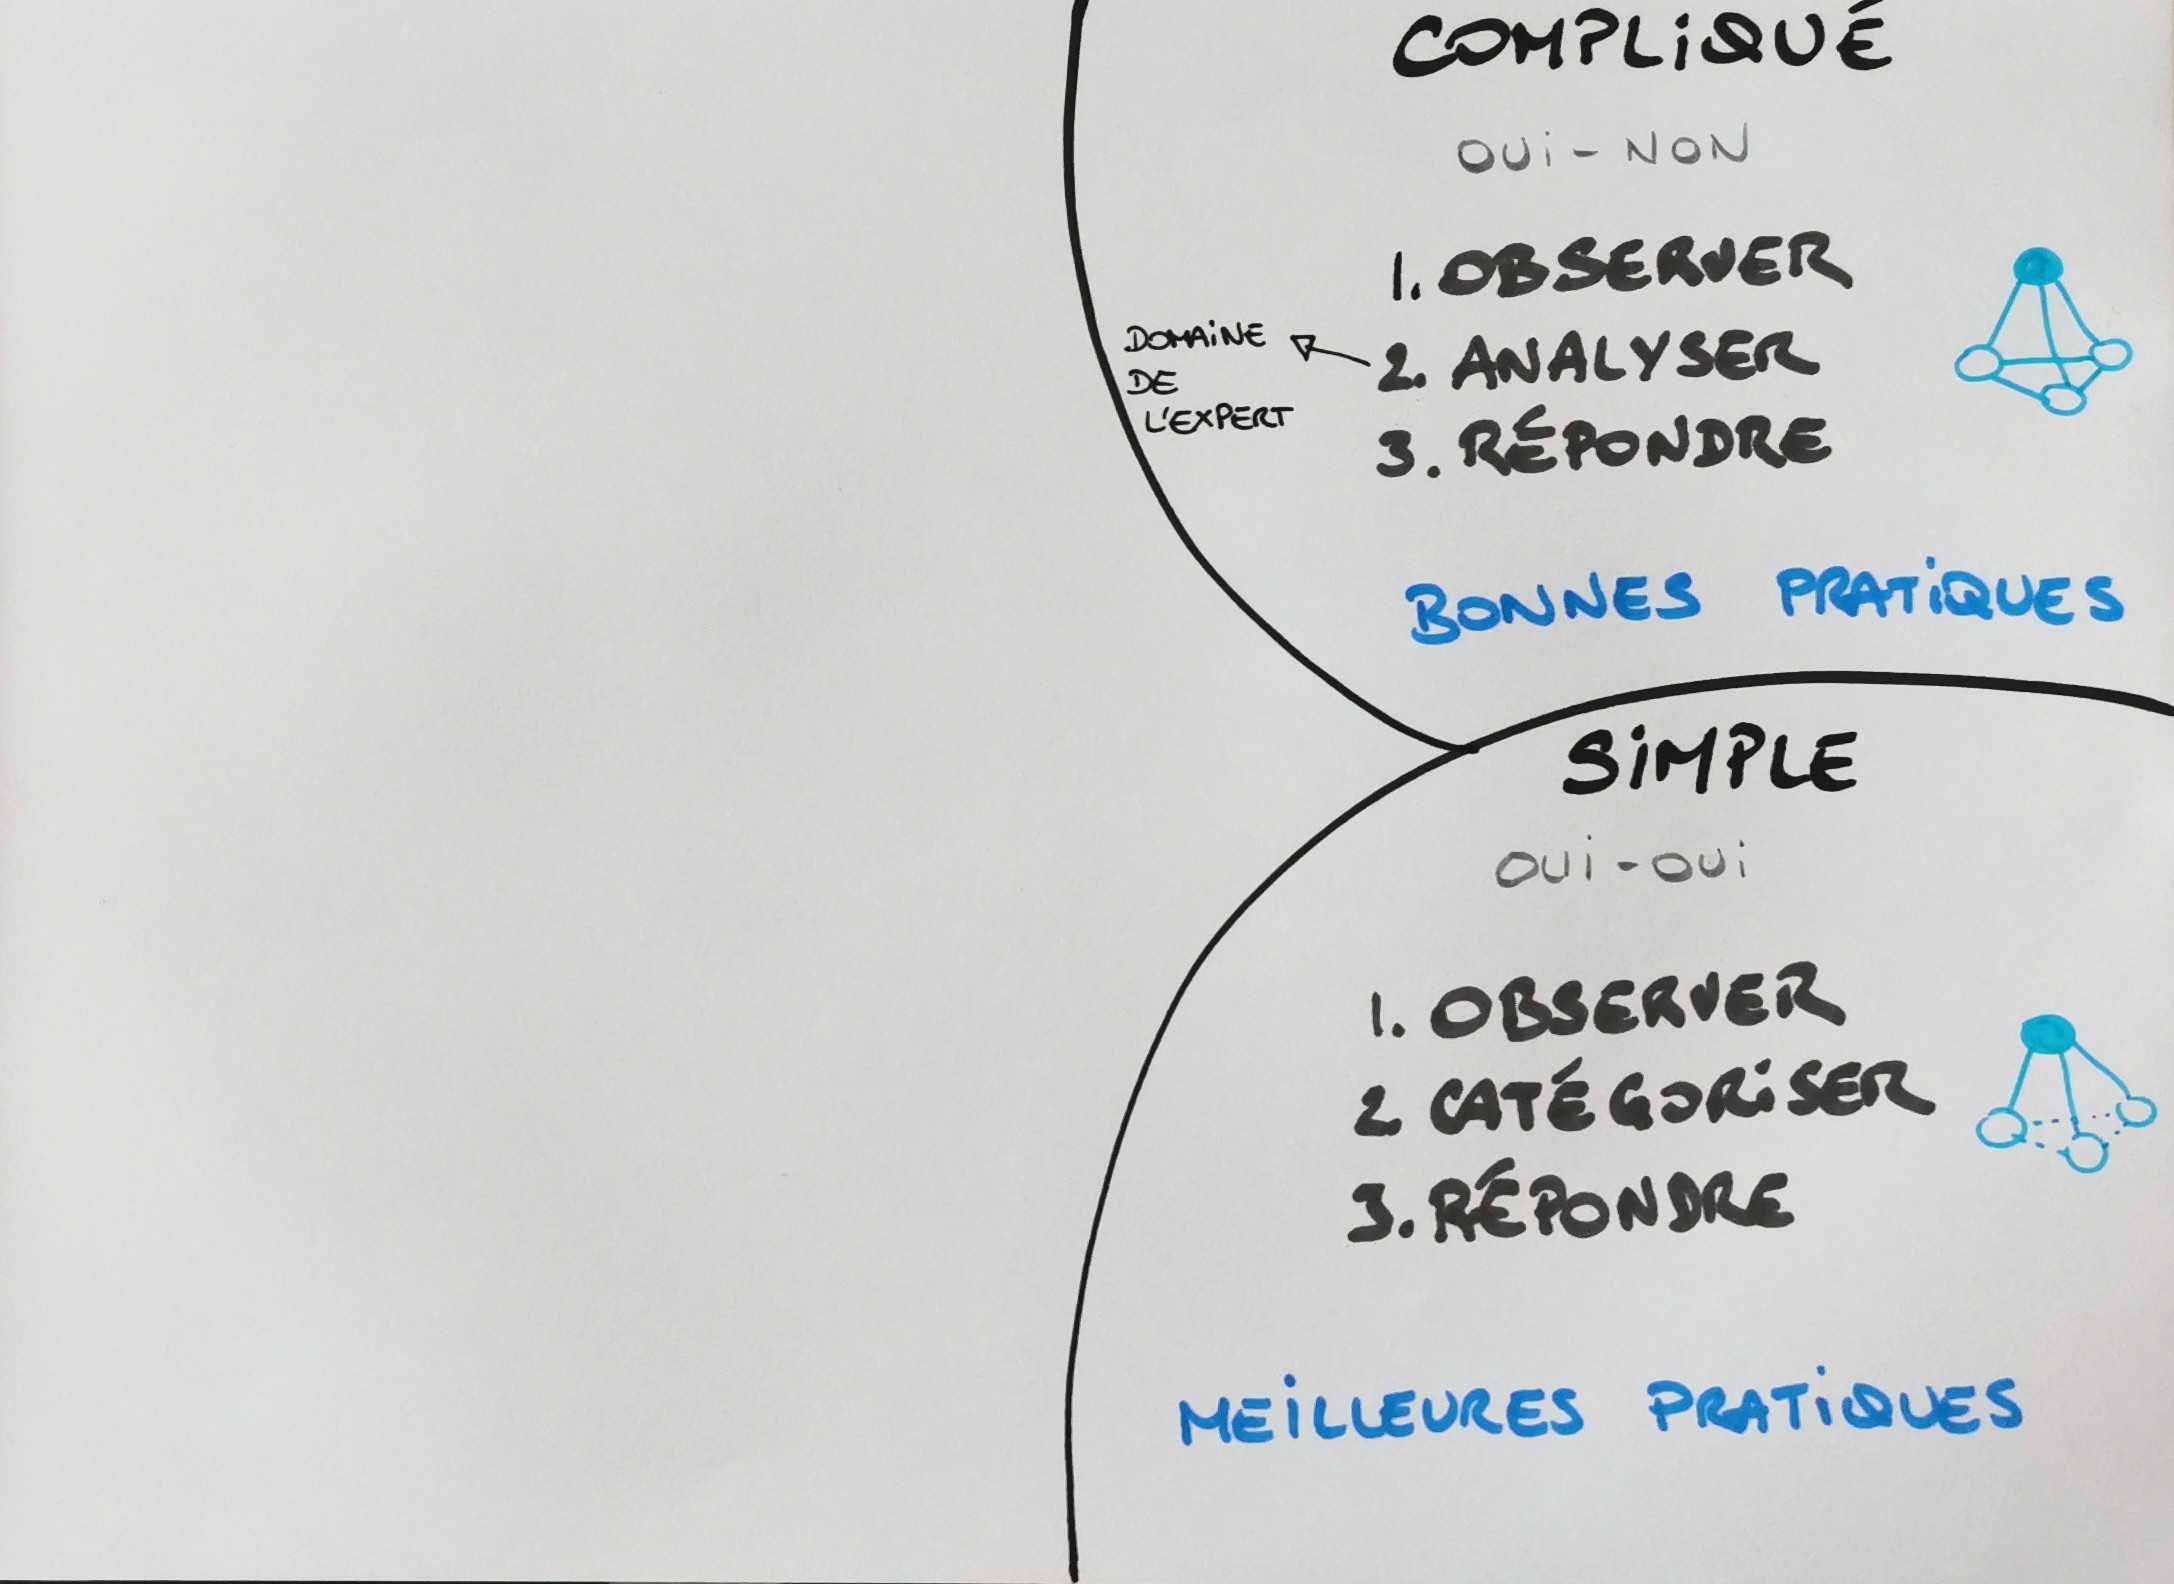 COMPLIQUÉ
OUi - NON
1. OBSERVER
2. ANALYSER
3. RÉPONDRE
DOMAiNE
DE
L'EXPERT
BONNES PRATiQUES
SiMPLE
OUi - OUi
1. OBSERVER
2. CATÉGORiSER
3. RÉPONDRE
MEiLLEURES PRATiQUES